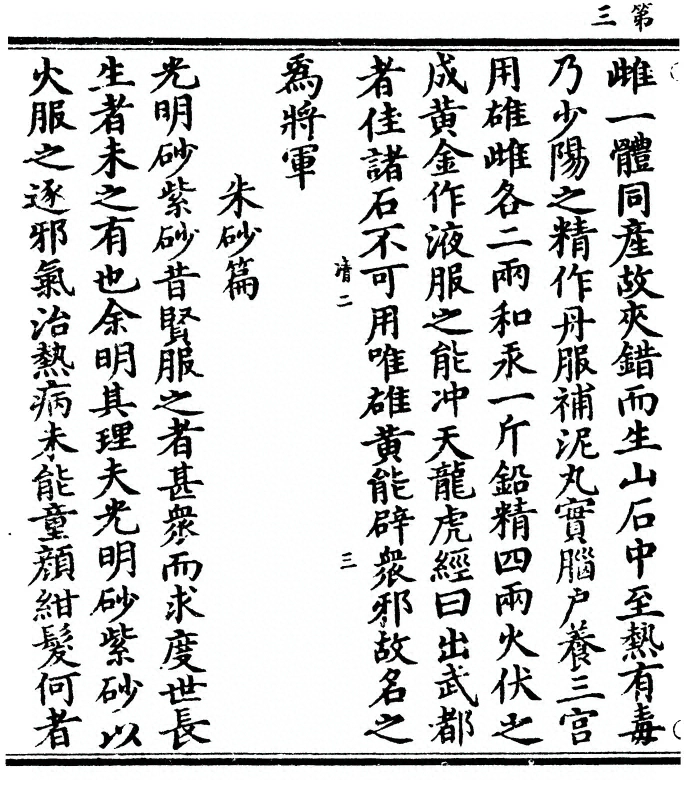 第三
雌一體同產故夾錯而生山石中至熱有毒
乃少陽之精作丹服補泥丸實腦戶養三宫
用雄雌各二兩和汞一斤鉛精四兩火伏之
成黄金作液服之能冲天龍虎經曰出武都
者佳諸石不可用唯雄黄能辟衆邪故名之
清二
三
爲將軍
朱砂篇
光明砂紫砂昔賢服之者甚衆而求度世長
生者未之有也余明其理夫光明砂紫砂以
火服之逐邪氣治熱病未能童顔紺髮何者